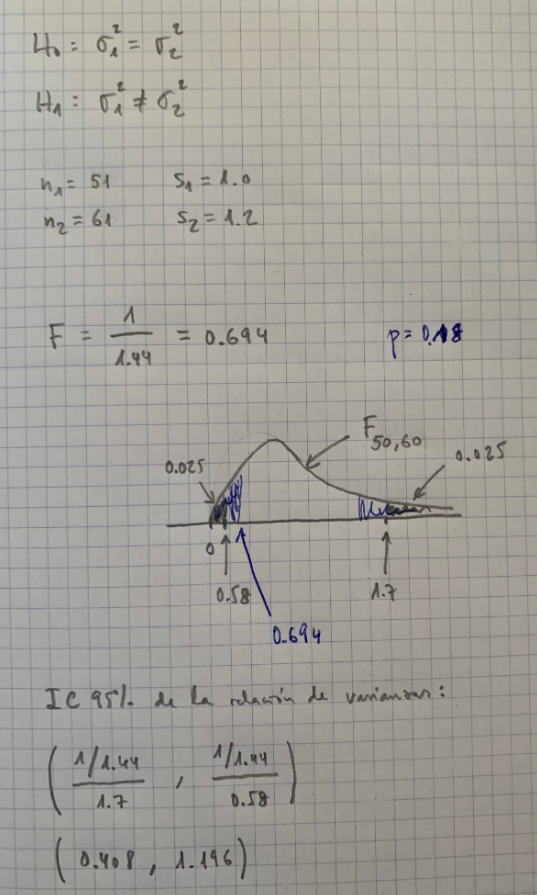 H₀ : σ₁² = σ₂²
H₁ : σ₁² ≠ σ₂²
n₁ = 51 S₁ = 1.0
n₂ = 61 S₂ = 1.2
F = 1 / 1.44 = 0.694 p = 0.18
F₅₀,₆₀
0.025 0.025
0
0.58 1.7
0.694
IC 95% de la relación de varianzas:
( 1/1.44 / 1.7 , 1/1.44 / 0.58 )
( 0.408 , 1.196 )